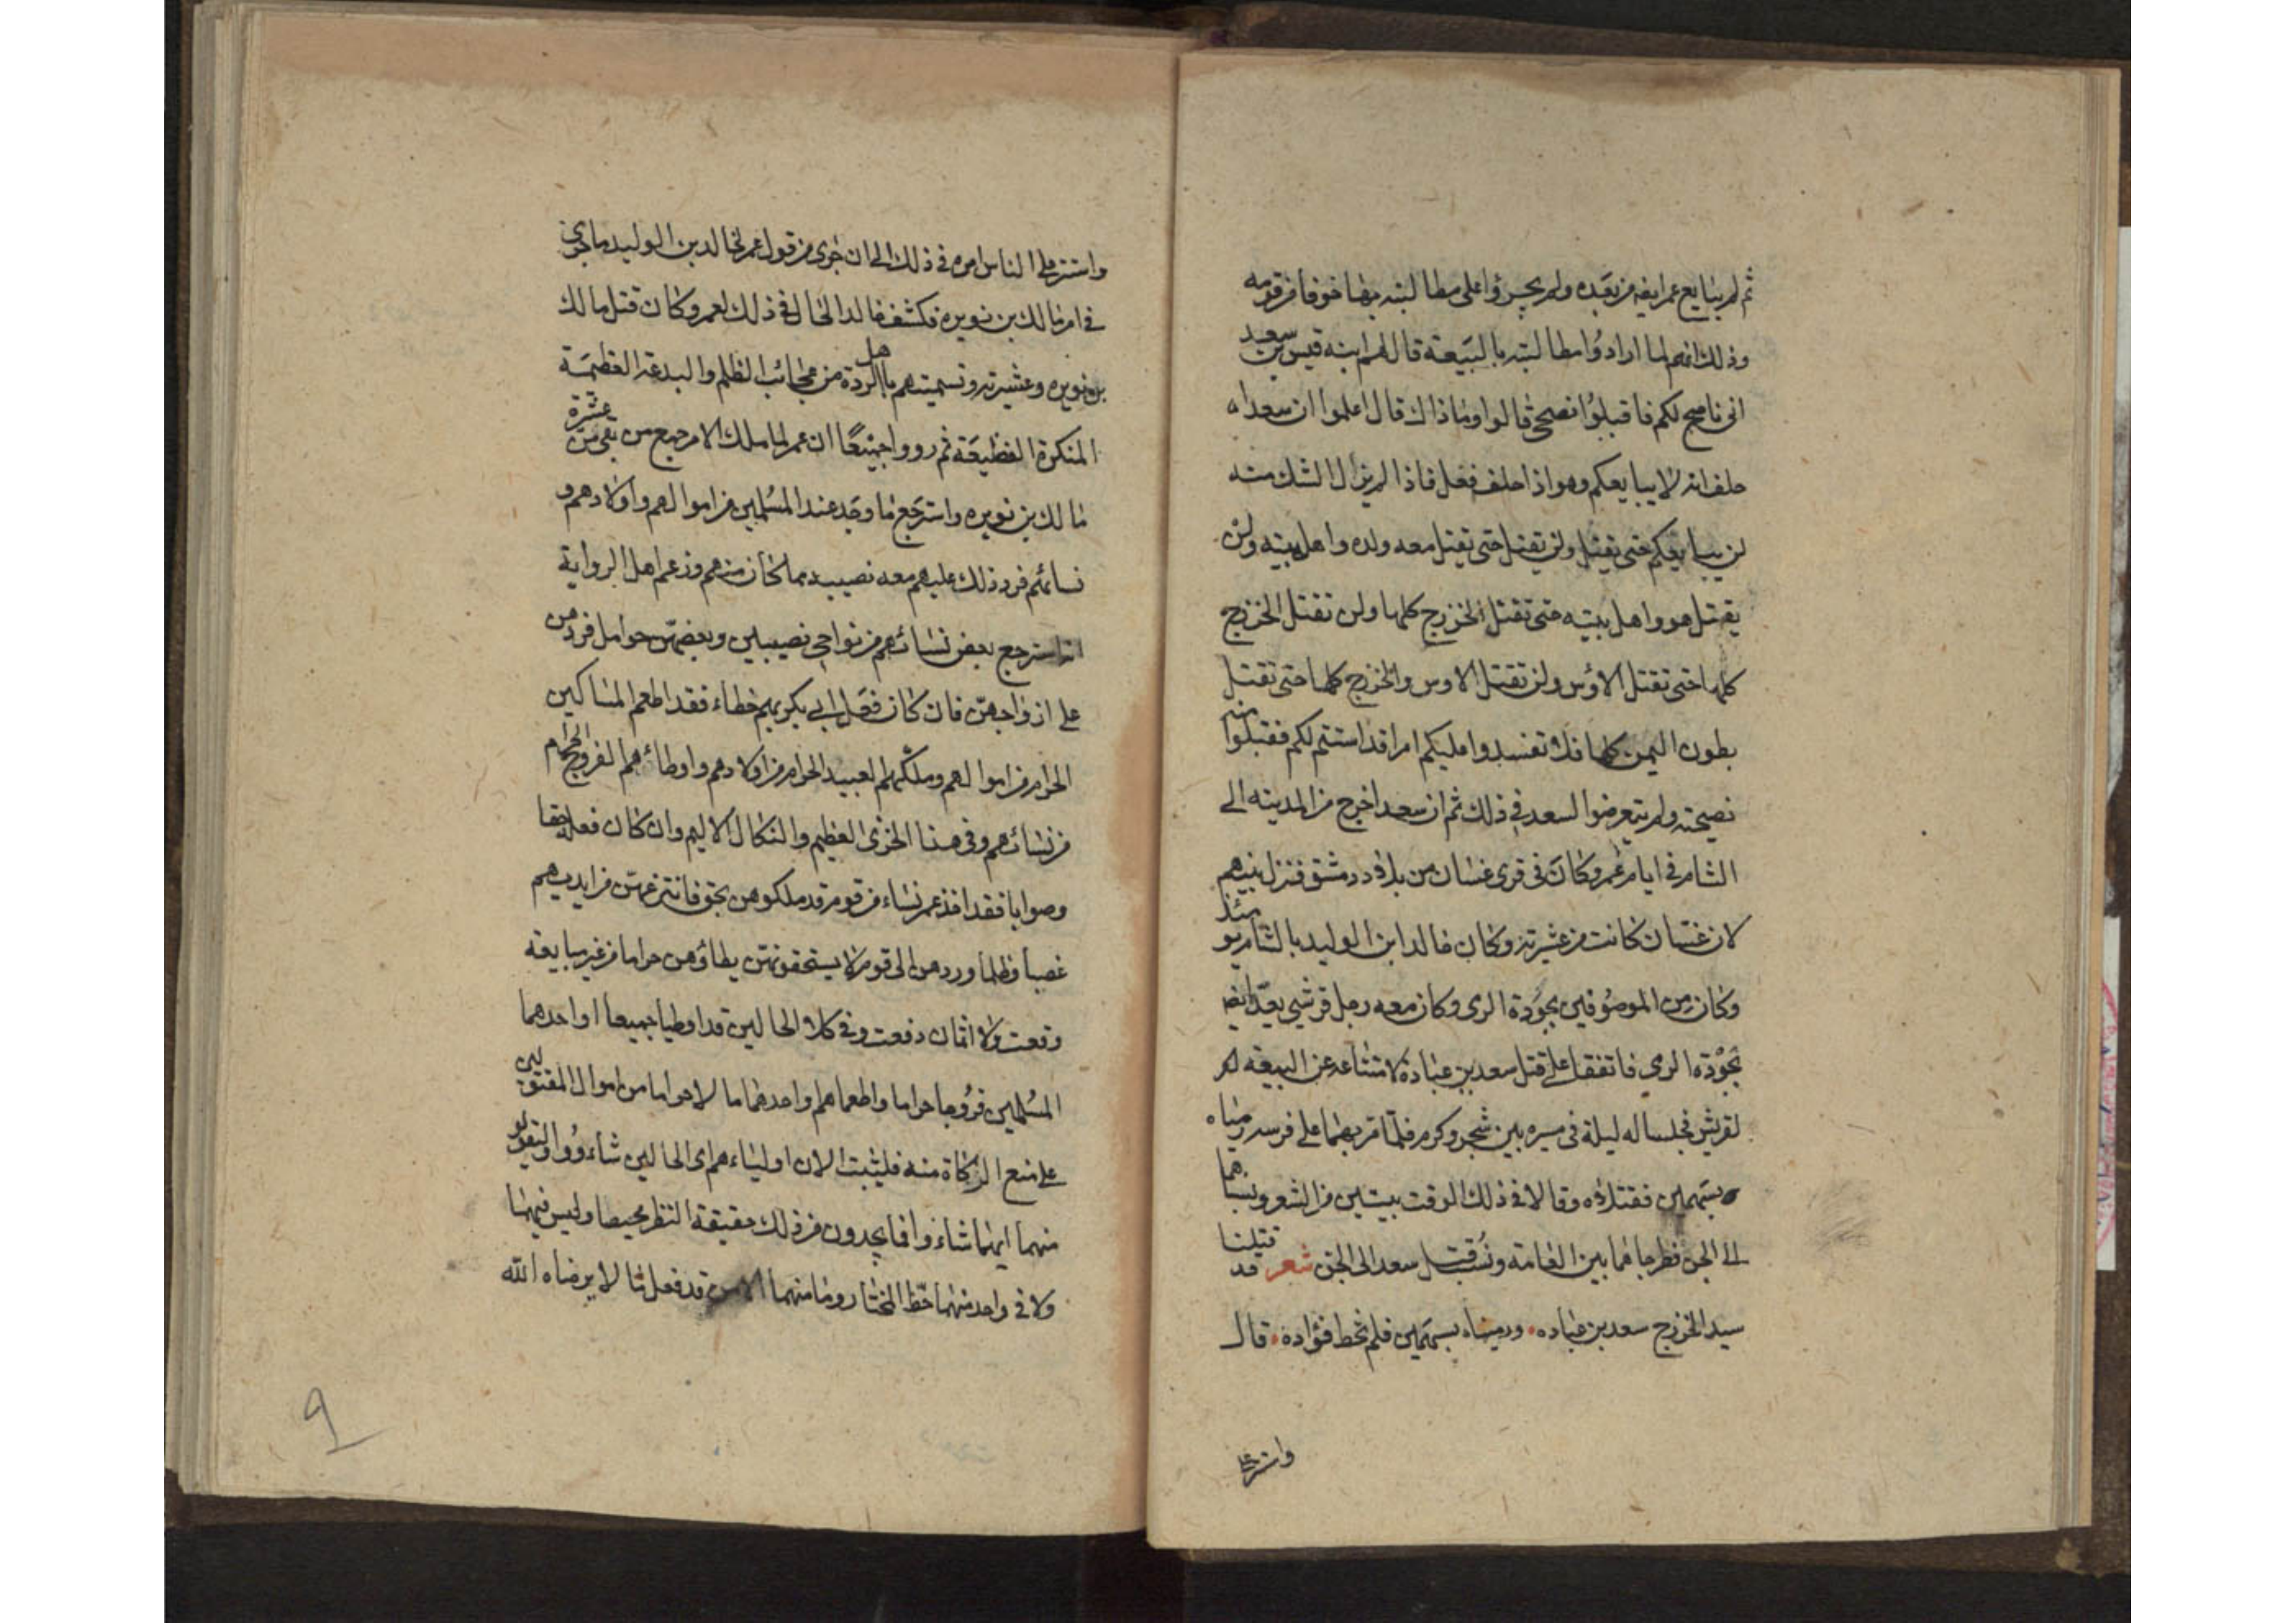 ثم لم يبايع عمر ايضا من بعده ولم يجسرؤا على مطالبته بها خوفا من قومه
وذلك انهم لما ارادوا مطالبته بالبيعة قال لهم ابنه قيس بن سعيد
انى ناصح لكم فاقبلوا نصحى قالوا وماذاك قال اعلموا ان سعدا
حلف انه لا يبايعكم وهو اذا حلف فعل فاذا لم يزال الشك منه
لن يبايعكم حتى يقتل ولن يقتل حتى يقتل معه ولده واهل بيته ولن
يقتل هو واهل بيته حتى تقتل الخزرج كلها ولن تقتل الخزرج
كلها حتى تقتل الاوس ولن تقتل الاوس والخزرج كلها حتى تقتل
بطون اليمن كلها فلا تفسدوا عليكم امرا قد استتم لكم فقبلوا منه
نصيحته ولم يتعرضوا لسعد فى ذلك ثم ان سعدا خرج من المدينه الى
الشام فى ايام عمر وكان فى قرى غسان من بلاد دمشق فنزل بينهم
لان غسان كانت من عشيرته وكان خالد ابن الوليد بالشام يومئذ
وكان من الموصوفين بجودة الرى وكان معه رجل قرشى يعد ايضا
بجودة الرمي فاتفقا على قتل سعد بن عبادة لامتناعه عن البيعة له
لقريش فجلسا له ليلة فى مسيره بين شجر وكرم فلما مر بهما على فرسه رمياه
بسهمين فقتلاه وقالا فى ذلك الوقت بيتين من الشعر ونسباهما
الى الجن فطرحاهما بين العامة ونسب قتل سعد الى الجن شعر قد قتلنا
سيد الخزرج سعد بن عباده ورميناه بسهمين فلم نخط فؤاده قال
واستتر على
واستتر على الناس امره فى ذلك الى ان جرى من قول عمر لخالد بن الوليد ما جرى
فى امر مالك بن نويره فكشف خالد الحال فى ذلك لعمر وكان قتل مالك
بن نويره وعشيرته وتسميتهم باهل الردة من عجائب الظلم والبدعة العظيمة
المنكرة الفظيعة ثم رووا جميعًا ان عمر لما ملك الامر جمع من بقى من عشرة
مالك بن نويره واسترجع ما وجد عند المسلمين من اموالهم واولادهم و
نسائهم فرد ذلك عليهم معه نصيبه مما كان منهم وزعم اهل الرواية
انه استرجع بعض نسائهم من نواحى نصيبين وبعضهن حوامل فردهن
على ازواجهن فان كان فعل ابى بكر بهم خطاء فقد اطعم المساكين
الحرام من اموالهم وملكهم العبيد الحرام من اولادهم واوطائهم الفروج الحرام
من نسائهم وفى هذا الخزى العظيم والنكال الاليم وان كان فعله حقا
وصوابا فقد اخذ عمر نساء من قوم قد ملكوهن بحق فانتزعهن من ايديهم
غصبا وظلما وردهن الى قوم لا يستحقونهن يطاؤهن حراما من غير مبايعة
وقعت ولا اثمان دفعت وفى كلا الحالين قد اوطيا جميعا او احدهما
المسلمين فروجا حراما واطعماهم واحدهما مالا حراما من اموال المقتولين
على منع الزكاة منه فليثبت الان اولياءهم اى الحالين شاءوا وليقولو
منهما ايهما شاءوا فما يجدون من ذلك حقيقة النظر محيصا وليس فيهما
ولا فى واحد منهما حظ المختار وما منهما الا من قد فعل ما لا يرضاه الله
9